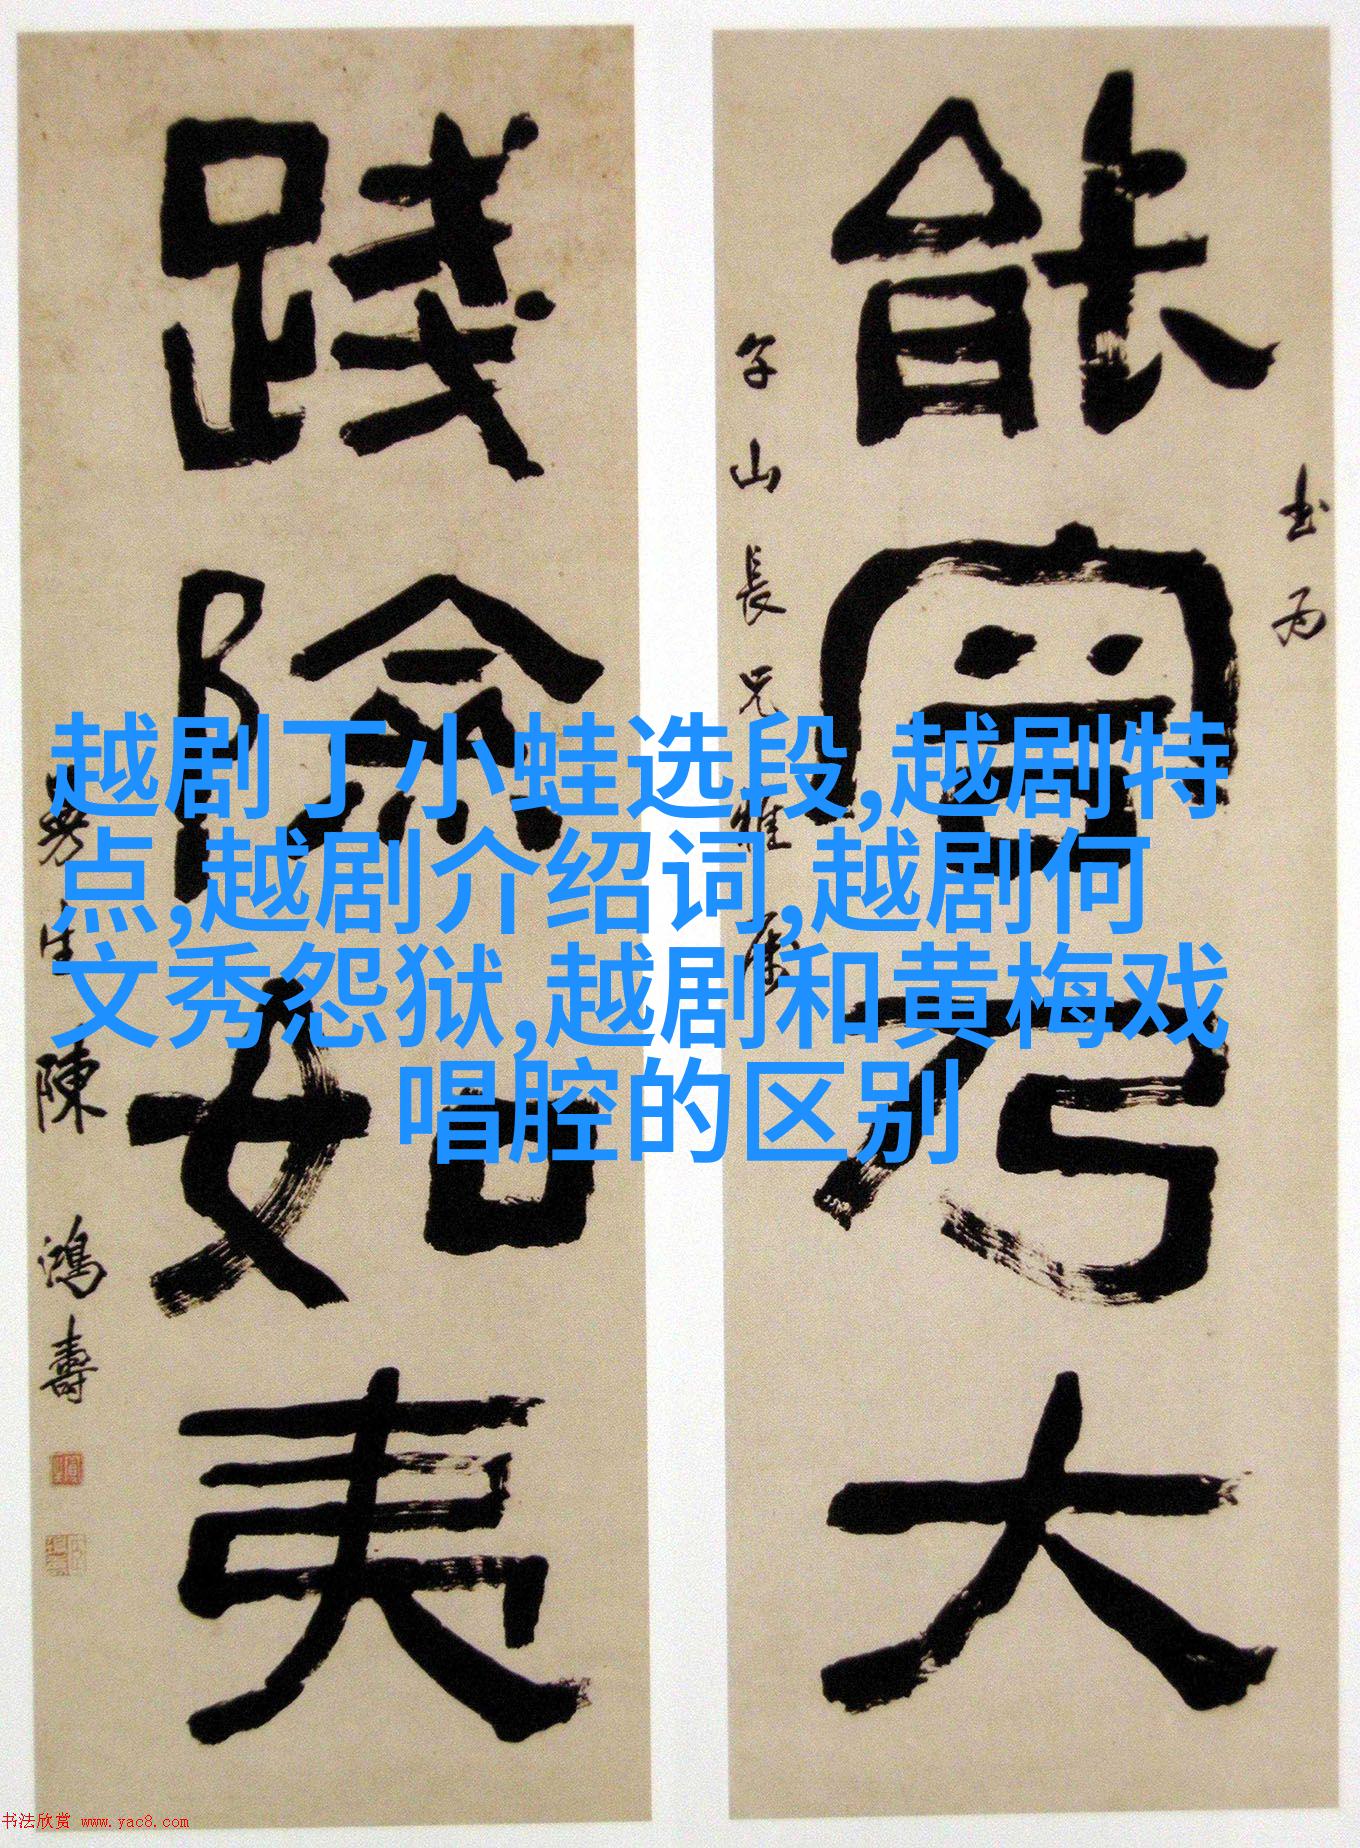 越剧丁小蛙选段,越剧特
点,越剧介绍词,越剧何
文秀怨狱,越剧和黄梅戏
唱腔的区别
書為
能乃大
山長兄雅屬
踐險如夷
曼生陳鴻壽
书法欣赏 www.yac8.com